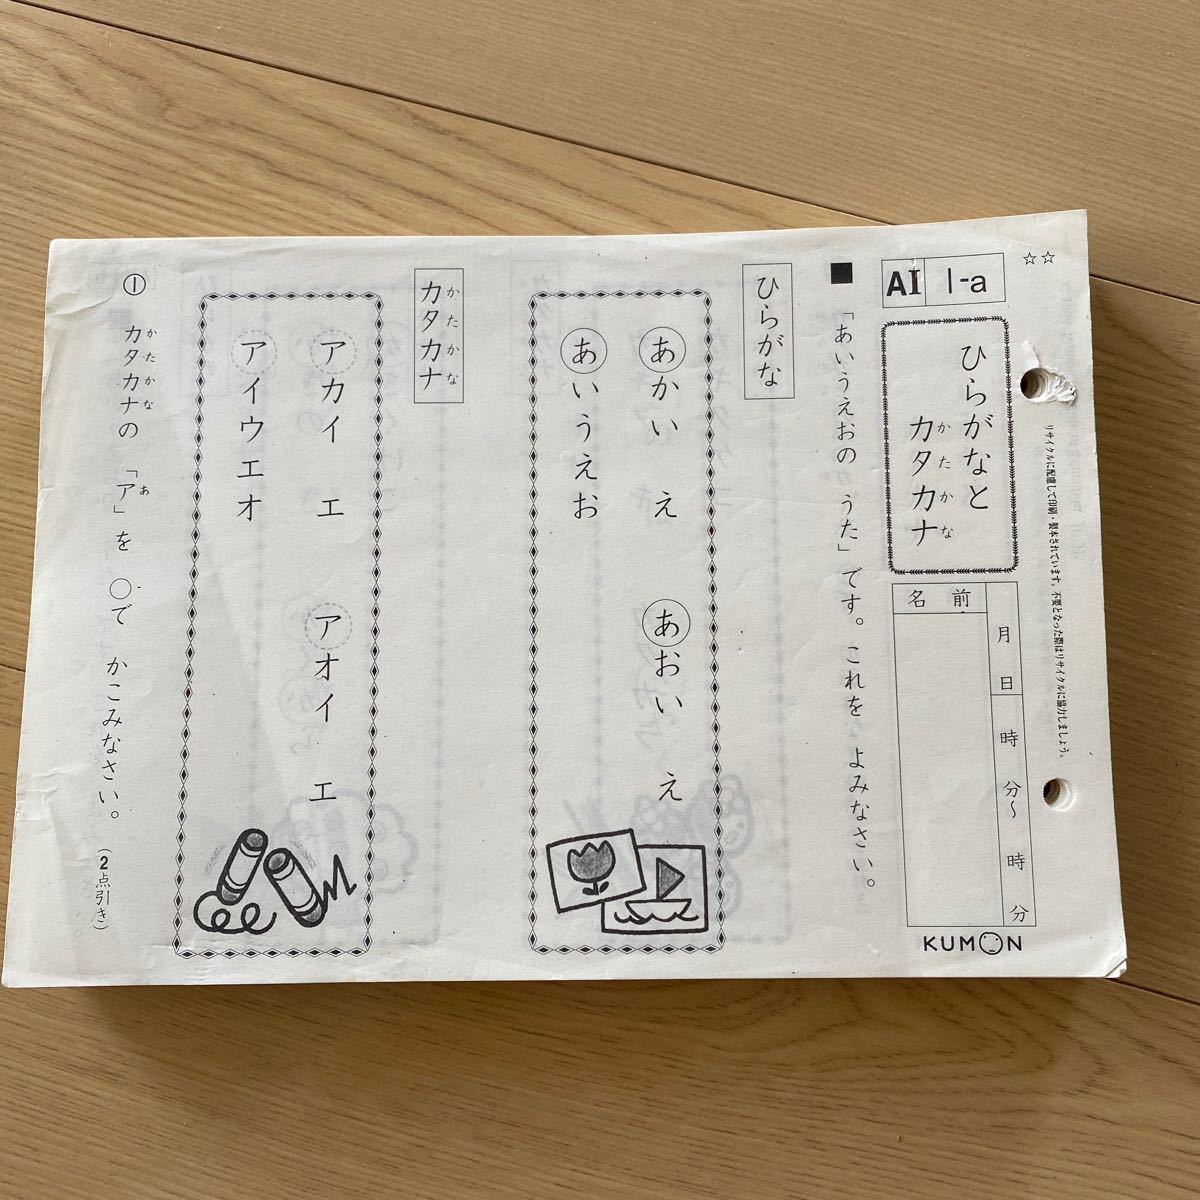 ☆☆
AI 1-a
ひらがなと
カタカナ
かたかな
月 日 時 分〜 時 分
名前
KUMON
リサイクルに配慮して印刷・製本されています。不要となった際はリサイクルに協力しましょう。
■「あいうえおの うた」です。これを よみなさい。
ひらがな
あかい え あおい え
あいうえお
カタカナ
かたかな
アカイ エ アオイ エ
アイウエオ
① カタカナの 「ア」を ○で かこみなさい。(2点引き)
かたかな あ